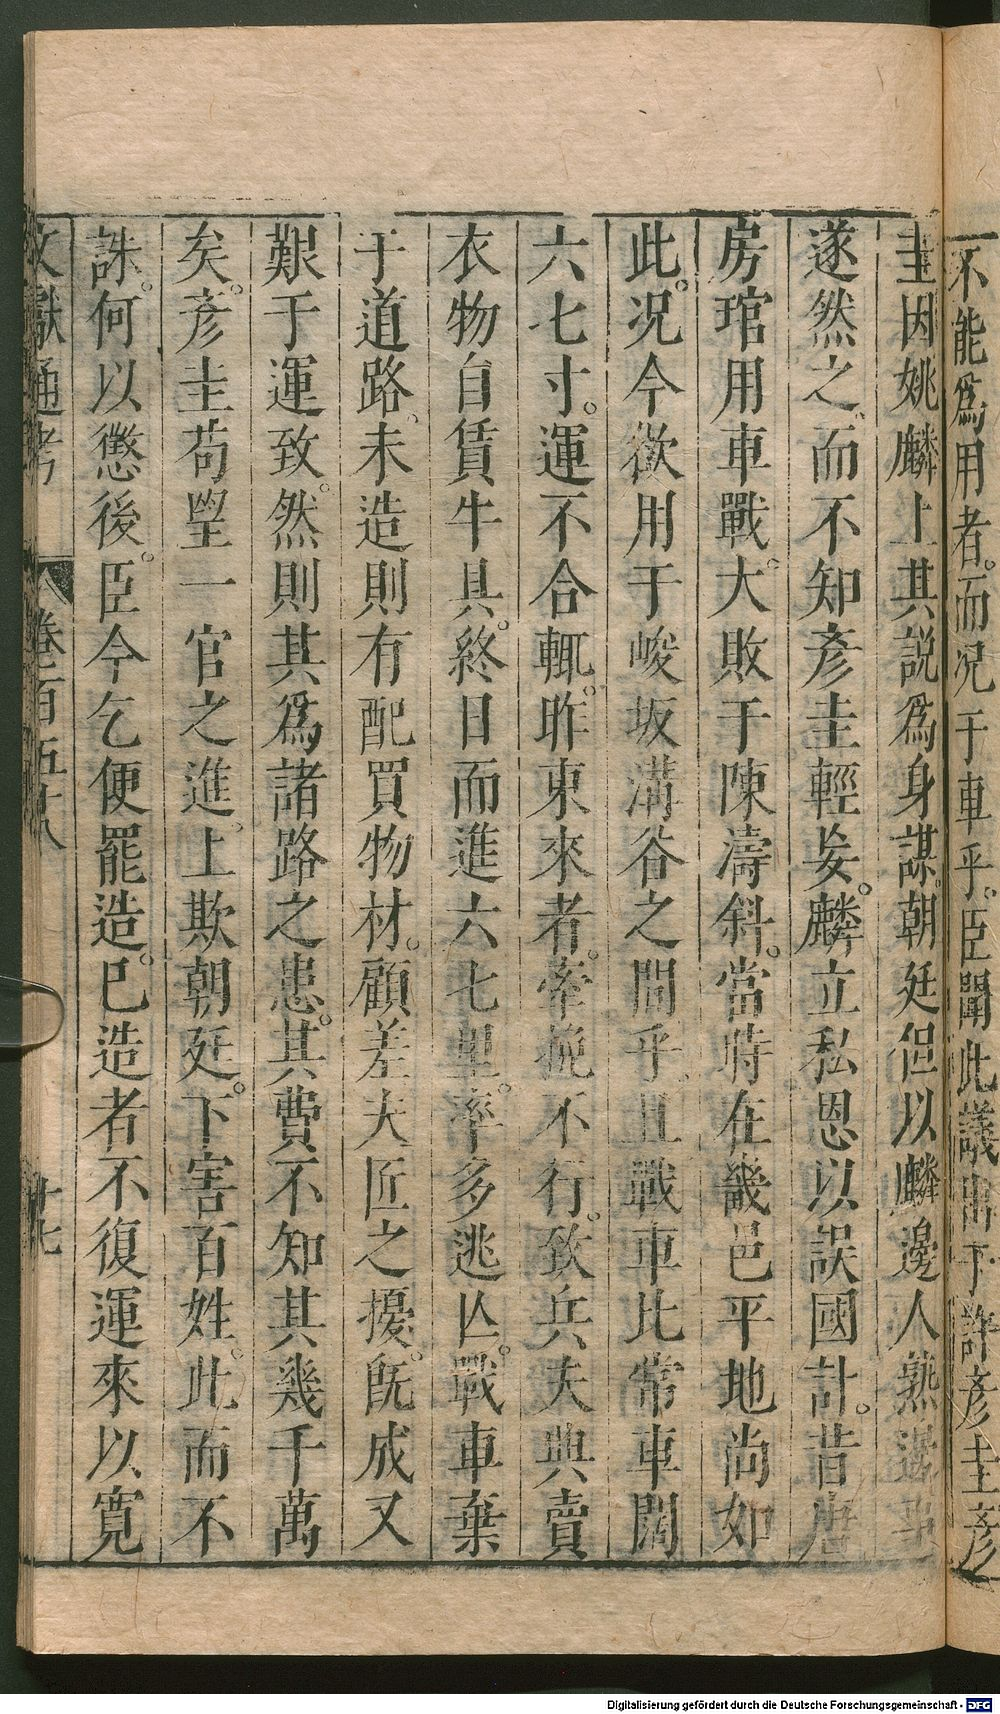 不能爲用者。而况于車乎。臣聞此議出于許彥圭。彥
圭因姚麟上其說爲身謀。朝廷但以麟邊人熟邊事
遂然之、而不知彥圭輕妄。麟立私恩以誤國計。昔唐
房琯用車戰。大敗于陳濤斜。當時在畿邑平地尚如
此。况今欲用于峻坂溝谷之間乎。且戰車比常車闊
六七寸。運不合輒。昨東來者。牽挽不行。致兵夫典賣
衣物自賃牛具。終日而進六七里。率多逃亾。戰車棄
于道路。未造則有配買物材。顧差夫匠之擾。旣成又
艱于運致。然則其爲諸路之患。其費不知其幾千萬
矣。彥圭苟朢一官之進。上欺朝廷。下害百姓。此而不
誅。何以懲後。臣今乞便罷造。已造者不復運來以寬
文獻通考 卷一百五十八 廿七
Digitalisierung gefördert durch die Deutsche Forschungsgemeinschaft - DFG